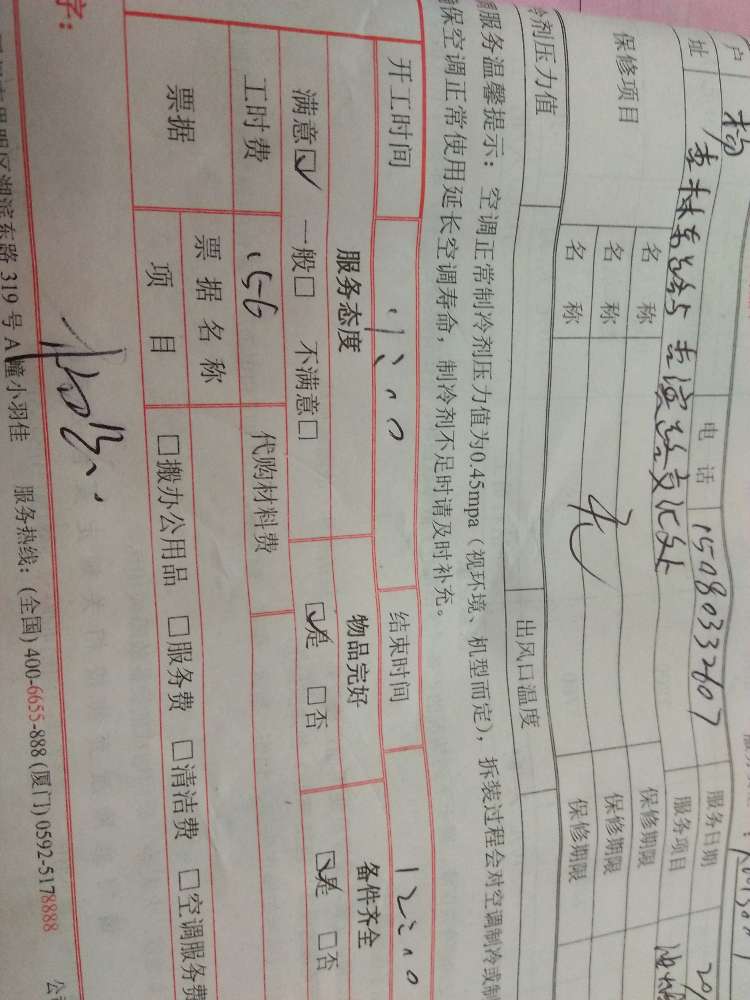 户 杨 电话 15080332607 服务日期 20
址 吉林东路与 交汇处 服务项目 油烟
保修项目 名称 保修期限
名称 无 保修期限
名称 保修期限
冷剂压力值 出风口温度
服务温馨提示：空调正常制冷剂压力值为0.45mpa（视环境、机型而定），拆装过程会对空调制冷或制
保空调正常使用延长空调寿命，制冷剂不足时请及时补充。
开工时间 结束时间 12:00
服务态度 物品完好 备件齐全
满意☑ 一般□ 不满意□ ☑是 □否 ☑是 □否
工时费 156 代购材料费
票据 票据名称 □搬办公用品 □服务费 □清洁费 □空调服务费
项目
字：
区湖滨东路 319 号 A 幢小羽佳 服务热线：(全国) 400-6655-888 (厦门) 0592-5178888